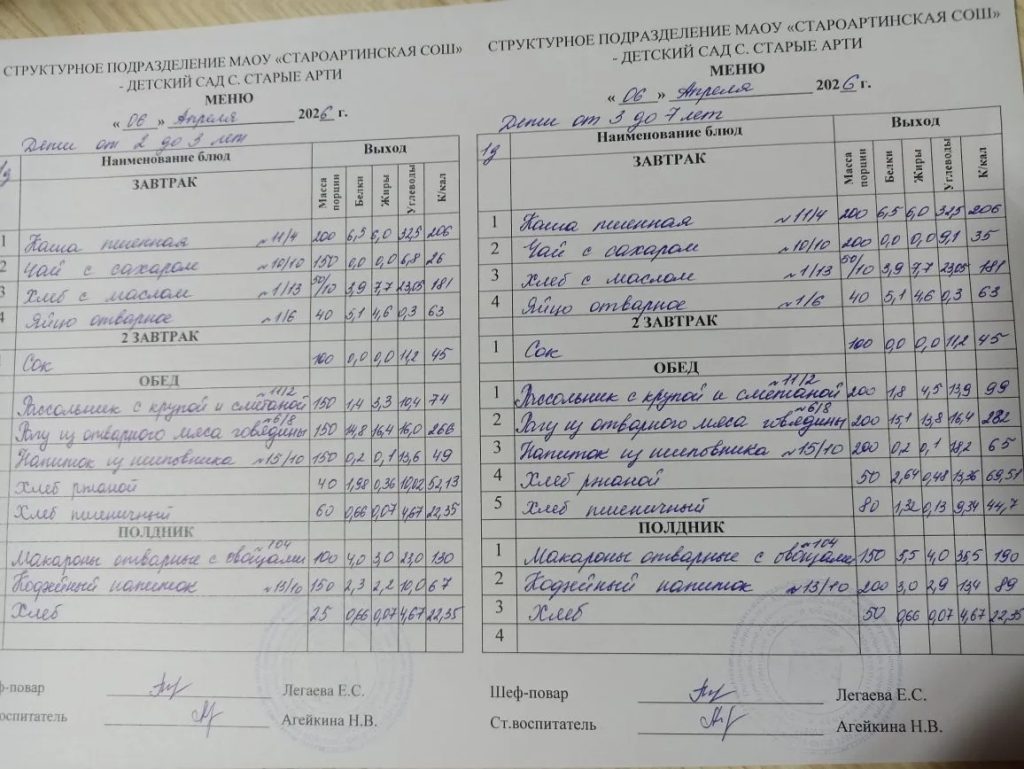 СТРУКТУРНОЕ ПОДРАЗДЕЛЕНИЕ МАОУ «СТАРОАРТИНСКАЯ СОШ»
- ДЕТСКИЙ САД С. СТАРЫЕ АРТИ
МЕНЮ
« 06 » Апреля 2026 г.
Дети от 2 до 3 лет
1д Наименование блюд Выход
ЗАВТРАК Масса порции Белки Жиры Углеводы К/кал
1 Каша пшенная №11/4 200 6,5 6,0 32,5 206
2 Чай с сахаром №10/10 150 0,0 0,0 6,8 26
3 Хлеб с маслом №1/13 50/10 3,9 7,7 23,05 181
4 Яйцо отварное №1/6 40 5,1 4,6 0,3 63
2 ЗАВТРАК
Сок 100 0,0 0,0 11,2 45
ОБЕД
Рассольник с крупой и сметаной №11/2 150 1,4 3,3 10,4 74
Рагу из отварного мяса говядины №6/8 150 14,8 16,4 16,0 266
Напиток из шиповника №15/10 150 0,2 0,1 13,6 49
Хлеб ржаной 40 1,98 0,36 10,02 52,13
Хлеб пшеничный 60 0,66 0,07 4,67 22,35
ПОЛДНИК
Макароны отварные с овощами №104 100 4,0 3,0 23,0 130
Кофейный напиток №13/10 150 2,3 2,2 10,0 67
Хлеб 25 0,66 0,07 4,67 22,35
ф-повар Легаева Е.С.
оспитатель Агейкина Н.В.
СТРУКТУРНОЕ ПОДРАЗДЕЛЕНИЕ МАОУ «СТАРОАРТИНСКАЯ СОШ»
- ДЕТСКИЙ САД С. СТАРЫЕ АРТИ
МЕНЮ
« 06 » Апреля 2026 г.
Дети от 3 до 7 лет
1д Наименование блюд Выход
ЗАВТРАК Масса порции Белки Жиры Углеводы К/кал
1 Каша пшенная №11/4 200 6,5 6,0 32,5 206
2 Чай с сахаром №10/10 200 0,0 0,0 9,1 35
3 Хлеб с маслом №1/13 50/10 3,9 7,7 23,05 181
4 Яйцо отварное №1/6 40 5,1 4,6 0,3 63
2 ЗАВТРАК
1 Сок 100 0,0 0,0 11,2 45
ОБЕД
1 Рассольник с крупой и сметаной №11/2 200 1,8 4,5 13,9 99
2 Рагу из отварного мяса говядины №6/8 200 15,1 13,8 16,4 282
3 Напиток из шиповника №15/10 200 0,2 0,1 18,2 65
4 Хлеб ржаной 50 2,64 0,48 13,36 69,51
5 Хлеб пшеничный 80 1,32 0,13 9,34 44,7
ПОЛДНИК
1 Макароны отварные с овощами №104 150 5,5 4,0 35,5 190
2 Кофейный напиток №13/10 200 3,0 2,9 13,4 89
3 Хлеб 50 0,66 0,07 4,67 22,35
4
Шеф-повар Легаева Е.С.
Ст.воспитатель Агейкина Н.В.